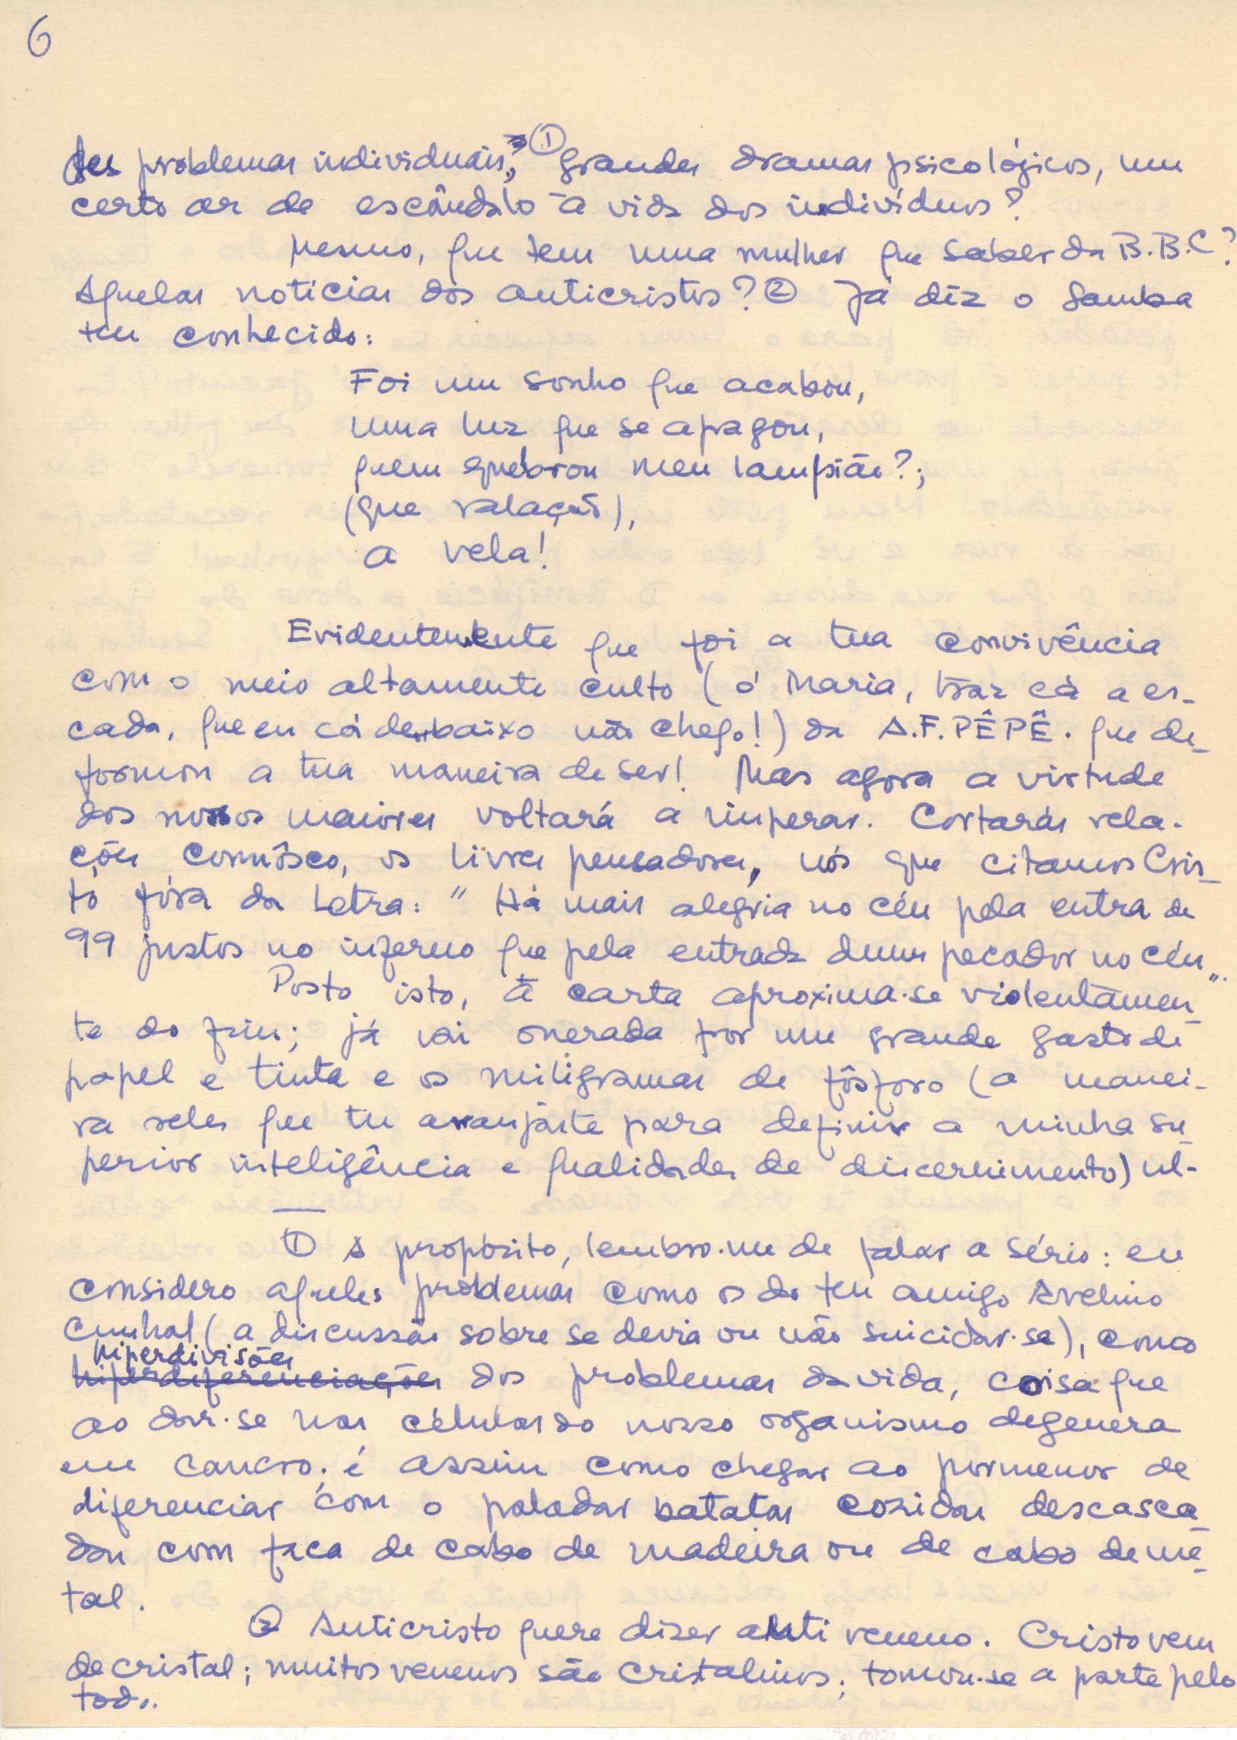 6
des problemas individuais, ① grandes dramas psicológicos, um
certo ar de escândalo à vida dos indivíduos?
Mesmo, que tem uma mulher que saber da B.B.C?
Aquelas notícias dos anticristos? ② Já diz o samba
teu conhecido:
Foi um sonho que acabou,
uma luz que se apagou,
quem quebrou meu lampião?;
(que ralação),
a vela!
Evidentemente que foi a tua convivência
com o meio altamente culto (ó Maria, traz cá a es-
cada, que eu cá de baixo não chego!) da A.F.PÊPÊ. que de-
formou a tua maneira de ser! Mas agora a virtude
dos nossos maiores voltará a imperar. Cortarás rela-
ções connôsco, os livres pensadores, nós que citamos Cris-
to fóra da Letra: "Há mais alegria no céu pela entra de
99 justos no inferno que pela entrada dum pecador no céu".
Posto isto, a carta aproxima-se violentamen-
te do fim; já vai onerada por um grande gasto de
papel e tinta e os miligramas de fósforo (a manei-
ra reles que tu arranjaste para definir a minha su-
perior inteligência e qualidades de discernimento) ul-
① A propósito, lembro-me de falar a sério: eu
considero aqueles problemas como os do teu amigo Avelino
Cunhal (a discussão sobre se devia ou não suicidar-se), como
hiperdivisões
hiperdiferenciações dos problemas da vida, coisa que
ao dar-se nas células do nosso organismo degenera
em cancro. é assim como chegar ao pormenor de
diferenciar com o paladar batatas cozidas descasca-
das com faca de cabo de madeira ou de cabo de me-
tal.
② Anticristo quere dizer anti veneno. Cristo vem
de cristal; muitos venenos são cristalinos; tomou-se a parte pelo
todo.